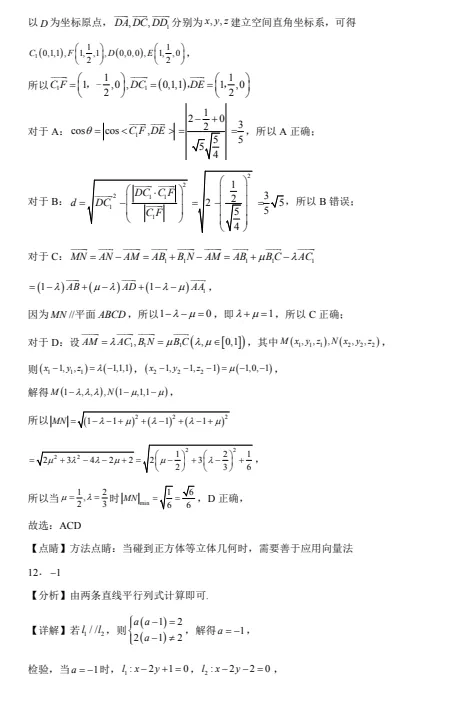 以 D 为坐标原点，$\overrightarrow{DA},\overrightarrow{DC},\overrightarrow{DD_1}$ 分别为 x, y, z 建立空间直角坐标系，可得
$C_1(0,1,1),F\left(1,\frac{1}{2},1\right),D(0,0,0),E\left(1,\frac{1}{2},0\right)$，
所以 $\overrightarrow{C_1F}=\left(1，-\frac{1}{2},0\right),\overrightarrow{DC_1}=(0,1,1),\overrightarrow{DE}=\left(1，\frac{1}{2},0\right)$
对于 A：$\cos\theta=\left|\cos<\overrightarrow{C_1F},\overrightarrow{DE}>\right|=\left|\frac{2-\frac{1}{2}+0}{\sqrt{5}\sqrt{\frac{5}{4}}}\right|=\frac{3}{5}$，所以 A 正确；
对于 B：$d=\sqrt{\overrightarrow{DC_1}^2-\left(\frac{\left|\overrightarrow{DC_1}\cdot\overrightarrow{C_1F}\right|}{\left|\overrightarrow{C_1F}\right|}\right)^2}=\sqrt{2-\left(\frac{\frac{1}{2}}{\sqrt{\frac{5}{4}}}\right)^2}=\frac{3}{5}\sqrt{5}$，所以 B 错误；
对于 C：$\overrightarrow{MN}=\overrightarrow{AN}-\overrightarrow{AM}=\overrightarrow{AB_1}+\overrightarrow{B_1N}-\overrightarrow{AM}=\overrightarrow{AB_1}+\mu\overrightarrow{B_1C}-\lambda\overrightarrow{AC_1}$
$=(1-\lambda)\overrightarrow{AB}+(\mu-\lambda)\overrightarrow{AD}+(1-\lambda-\mu)\overrightarrow{AA_1}$，
因为 MN //平面 ABCD，所以 $1-\lambda-\mu=0$，即 $\lambda+\mu=1$，所以 C 正确；
对于 D：设 $\overrightarrow{AM}=\lambda\overrightarrow{AC_1},\overrightarrow{B_1N}=\mu\overrightarrow{B_1C}(\lambda,\mu\in[0,1])$，其中 $M(x_1,y_1,z_1),N(x_2,y_2,z_2)$，
则 $(x_1-1,y_1,z_1)=\lambda(-1,1,1)$，$(x_2-1,y_2-1,z_2-1)=\mu(-1,0,-1)$，
解得 $M(1-\lambda,\lambda,\lambda),N(1-\mu,1,1-\mu)$，
所以 $|MN|=\sqrt{(1-\lambda-1+\mu)^2+(\lambda-1)^2+(\lambda-1+\mu)^2}$
$=\sqrt{2\mu^2+3\lambda^2-4\lambda-2\mu+2}=\sqrt{2\left(\mu-\frac{1}{2}\right)^2+3\left(\lambda-\frac{2}{3}\right)^2+\frac{1}{6}}$，
所以当 $\mu=\frac{1}{2},\lambda=\frac{2}{3}$ 时 $|MN|_{\min}=\sqrt{\frac{1}{6}}=\frac{\sqrt{6}}{6}$，D 正确，
故选：ACD
【点睛】方法点睛：当碰到正方体等立体几何时，需要善于应用向量法
12．−1
【分析】由两条直线平行列式计算即可.
【详解】若 $l_1//l_2$，则 $\begin{cases}a(a-1)=2\\2(a-1)\neq 2\end{cases}$，解得 $a=-1$，
检验，当 $a=-1$ 时，$l_1:x-2y+1=0$，$l_2:x-2y-2=0$，